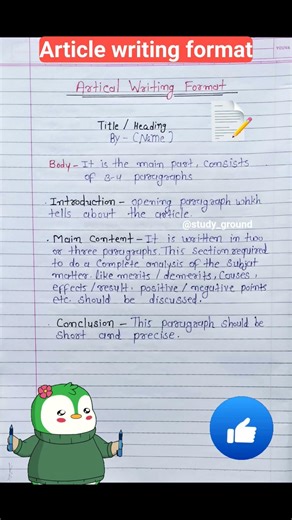 Article writing format
Artical Writing Format
Title / Heading
By - (Name)
Body - It is the main part, consists
of 3-4 paragraphs
Introduction - opening paragraph which
tells about the article.
@study_ground
Main Content - It is written in two
or three paragraphs. This section required
to do a complete analysis of the subjat
matter like merits / demerits, causes,
effects / result. positive / negative points
etc. should be discussed.
Conclusion - This paragraph should be
short and precise.